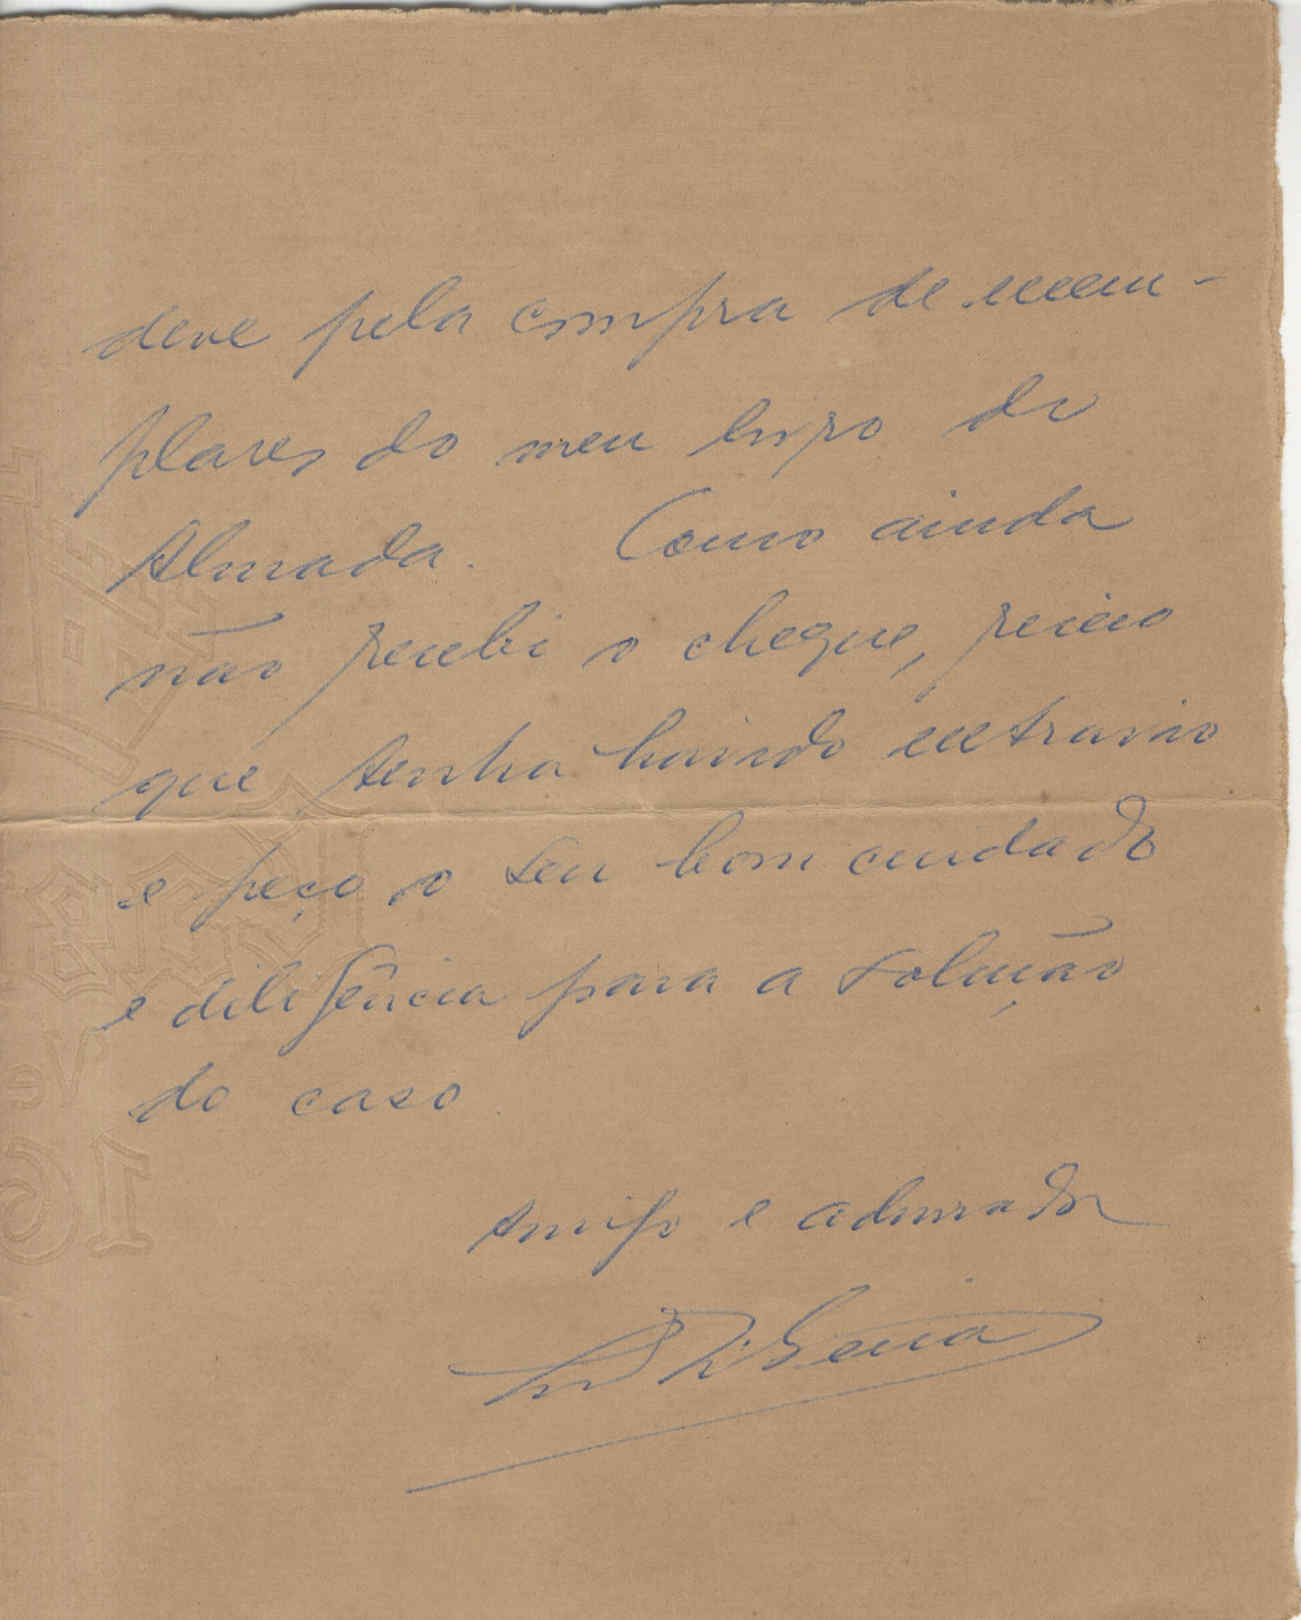 deve pela compra de exem-
plares do meu livro de
Almada. Como ainda
não recebi o cheque, receio
que tenha havido extravio
e peço o seu bom cuidado
e diligência para a solução
do caso.
Amigo e admirador
Sena